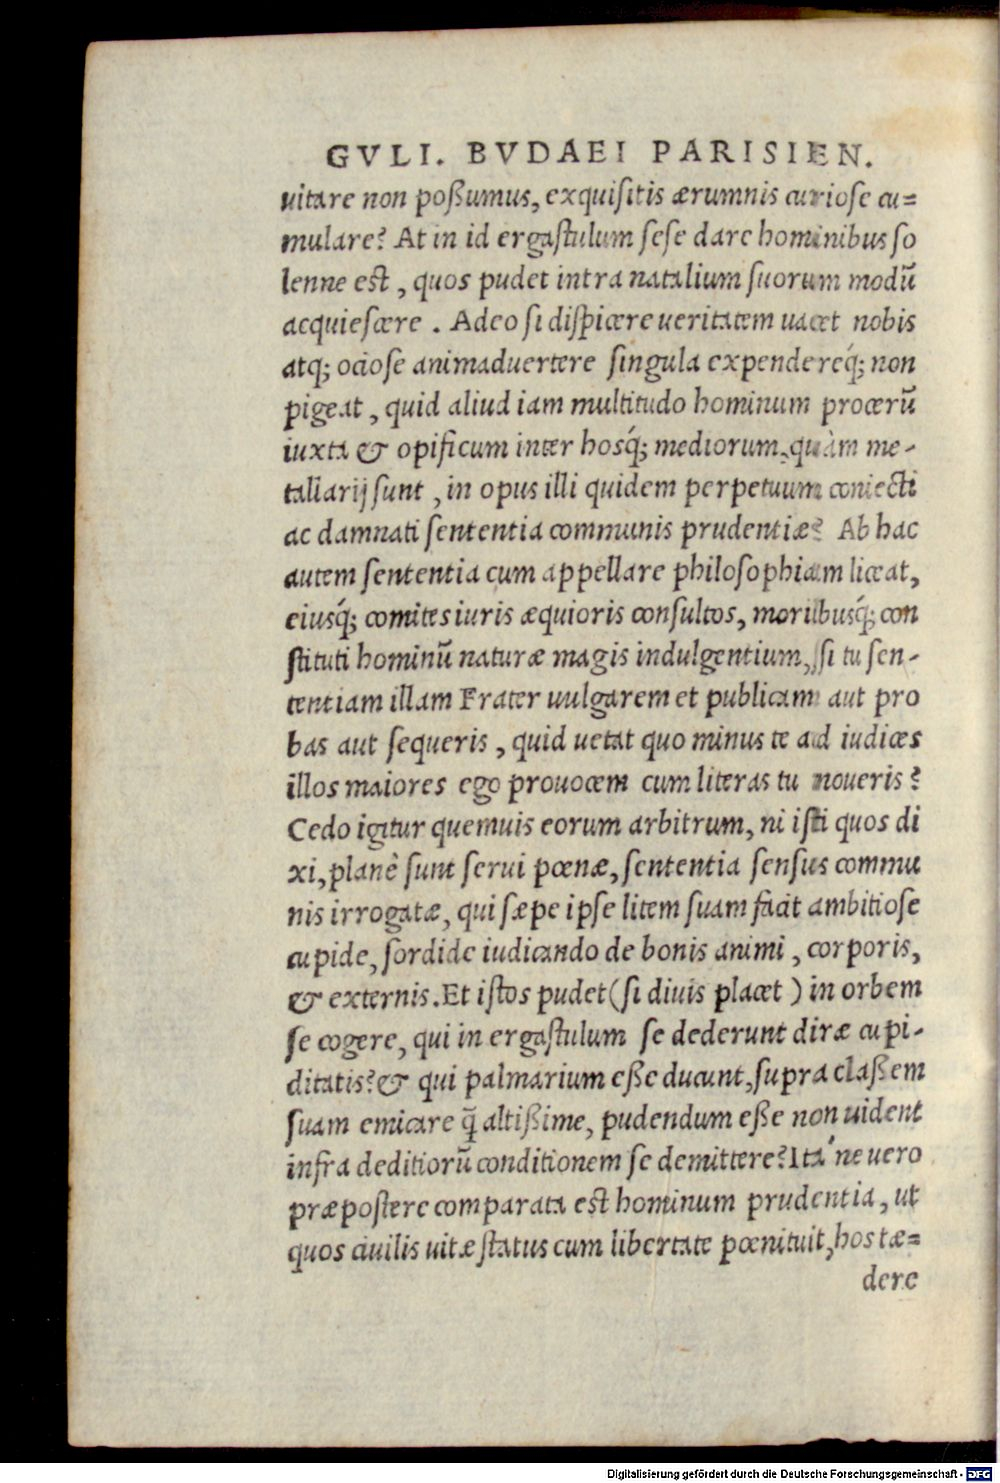 GVLI. BVDAEI PARISIEN.
uitare non poßumus, exquisitis ærumnis curiose cu=
mulare? At in id ergastulum sese dare hominibus so
lenne est, quos pudet intra natalium suorum modũ
acquiescere. Adeo si dispicere ueritatem uacet nobis
atq; ociose animaduertere singula expendereq́; non
pigeat, quid aliud iam multitudo hominum procerũ
iuxta & opificum inter hosq́; mediorum, quàm me-
tallarij sunt, in opus illi quidem perpetuum coniecti
ac damnati sententia communis prudentiæ? Ab hac
autem sententia cum appellare philosophiam liceat,
eiusq́; comites iuris æquioris consultos, moribusq́; con
stituti hominũ naturæ magis indulgentium, si tu sen-
tentiam illam Frater uulgarem et publicam aut pro
bas aut sequeris, quid uetat quo minus te ad iudices
illos maiores ego prouocem cum literas tu noueris?
Cedo igitur quemuis eorum arbitrum, ni isti quos di
xi, planè sunt serui pœnæ, sententia sensus commu
nis irrogatæ, qui sæpe ipse litem suam facit ambitiose
cupide, sordide iudicando de bonis animi, corporis,
& externis. Et istos pudet (si diuis placet) in orbem
se cogere, qui in ergastulum se dederunt diræ cupi-
ditatis? & qui palmarium eße ducunt, supra claßem
suam emicare q̃ altißime, pudendum eße non uident
infra deditiorũ conditionem se demittere? Ita'ne uero
præpostere comparata est hominum prudentia, ut
quos ciuilis uitæ status cum libertate pœnituit, hos tæ=
dere
Digitalisierung gefördert durch die Deutsche Forschungsgemeinschaft - DFG